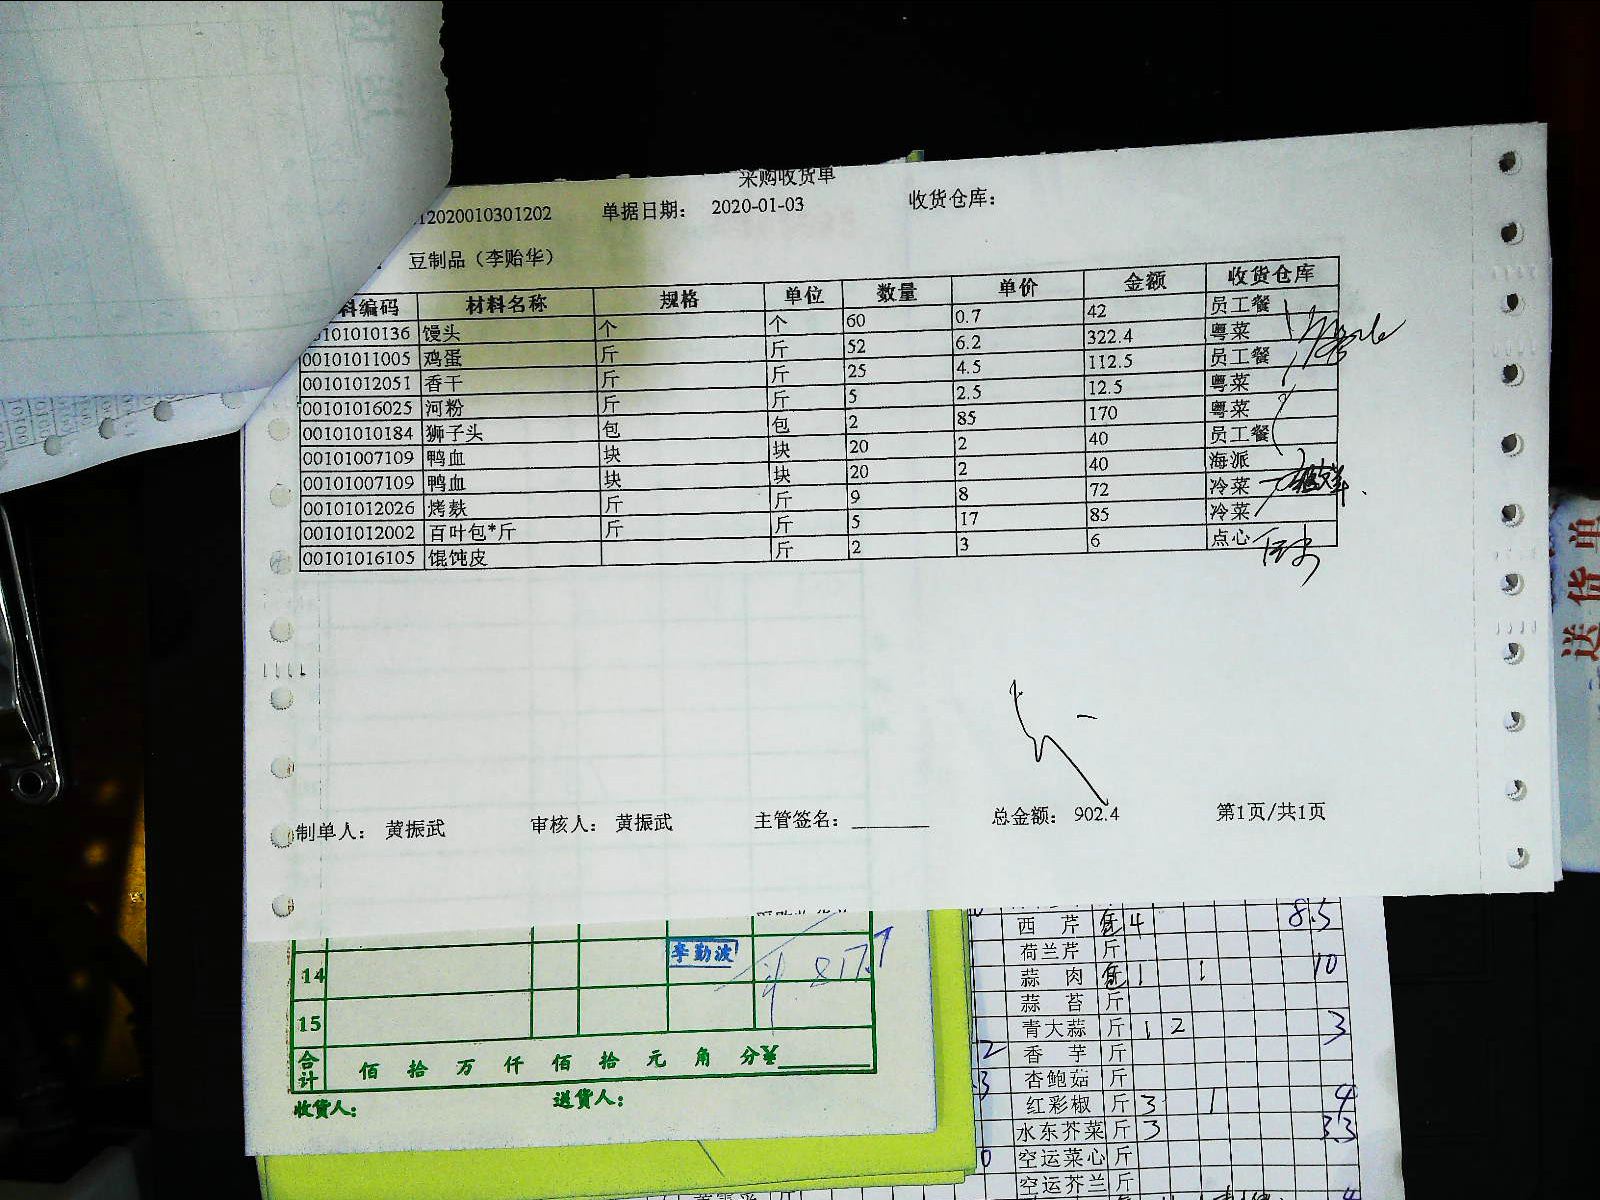 采购收货单
12020010301202 单据日期： 2020-01-03 收货仓库：
豆制品（李贻华）
料编码 材料名称 规格 单位 数量 单价 金额 收货仓库
0101010136 馒头 个 个 60 0.7 42 员工餐
00101011005 鸡蛋 斤 斤 52 6.2 322.4 粤菜
00101012051 香干 斤 斤 25 4.5 112.5 员工餐
00101016025 河粉 斤 斤 5 2.5 12.5 粤菜
00101010184 狮子头 包 包 2 85 170 粤菜
00101007109 鸭血 块 块 20 2 40 员工餐
00101007109 鸭血 块 块 20 2 40 海派
00101012026 烤麸 斤 斤 9 8 72 冷菜
00101012002 百叶包*斤 斤 斤 5 17 85 冷菜
00101016105 馄饨皮 斤 2 3 6 点心
制单人： 黄振武 审核人： 黄振武 主管签名： 总金额： 902.4 第1页/共1页
李勤波
14
15
合计 佰 拾 万 仟 佰 拾 元 角 分¥
收货人： 送货人：
西芹 4 8.5
荷兰芹 斤
蒜肉 1 1 10
蒜苔 斤
青大蒜 斤 1 2 3
香芋 斤
杏鲍菇 斤
红彩椒 斤 3 1 4
水东芥菜 斤 3 33
空运菜心 斤
空运芥兰 斤
送货单